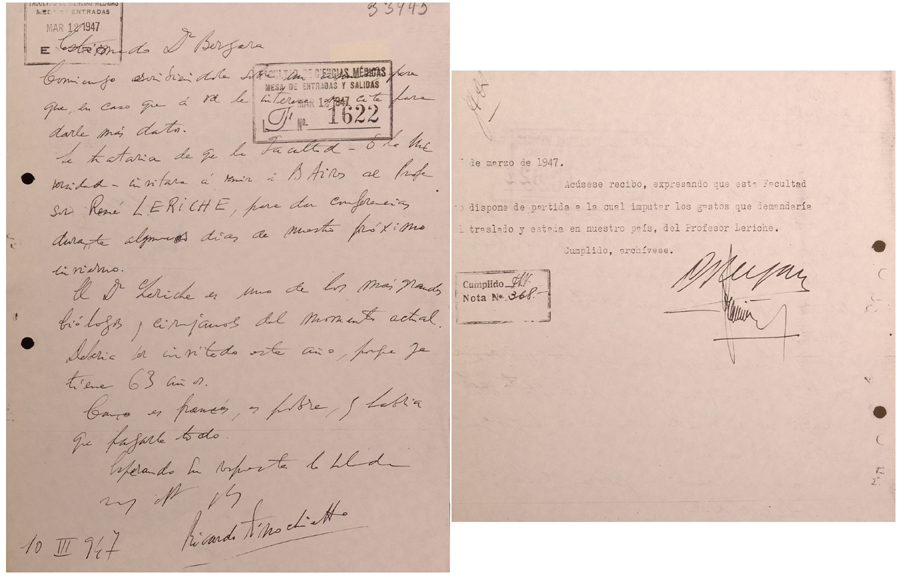 33945
FACULTAD DE CIENCIAS MEDICAS
MESA DE ENTRADAS
MAR 12 1947
E
Estimado Dr Bergara
FACULTAD DE CIENCIAS MÉDICAS
MESA DE ENTRADAS Y SALIDAS
MAR 12 1947
Nº 1622
Comienzo para
que en caso que á vd le interese para
darle más datos.
Se trataria de qe la Facultad - ó la Uni
versidad - invitara á venir á BAires al Profe
sor René LERICHE, para dar conferencias
durante algunos dias de nuestro próximo
invierno.
El Dr Leriche es uno de los más grandes
biólogos y cirujanos del momento actual.
Deberia ser invitado este año, porque ya
tiene 63 años.
Como es francés, es pobre, y habria
que pagarle todo.
Esperando su respuesta le saluda
Ricardo Finochietto
10 III 947
de marzo de 1947.
Acúsese recibo, expresando que esta Facultad
dispone de partida a la cual imputar los gastos que demandaría
traslado y estada en nuestro país, del Profesor Leriche.
Cumplido, archívese.
Cumplido
Nota Nº 368.-